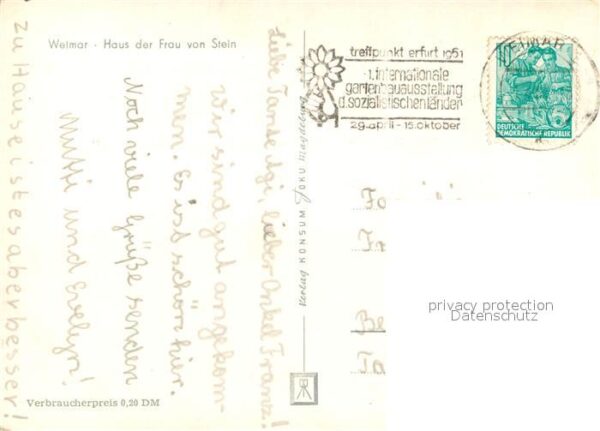 Weimar · Haus der Frau von Stein
Liebe Tante Ilgi, lieber Onkel Franz!
Wir sind gut angekom-
men. Es ist schön hier.
Noch viele Grüße senden
Mutti und Evelyn!
Zu Hause ist es aber besser!
Verbraucherpreis 0,20 DM
Verlag KONSUM FOKU Magdeburg
treffpunkt erfurt 1961
1. internationale
gartenbauausstellung
d. sozialistischen länder
29. april - 15. oktober
WEIMAR
10
DEUTSCHE
DEMOKRATISCHE REPUBLIK
privacy protection
Datenschutz